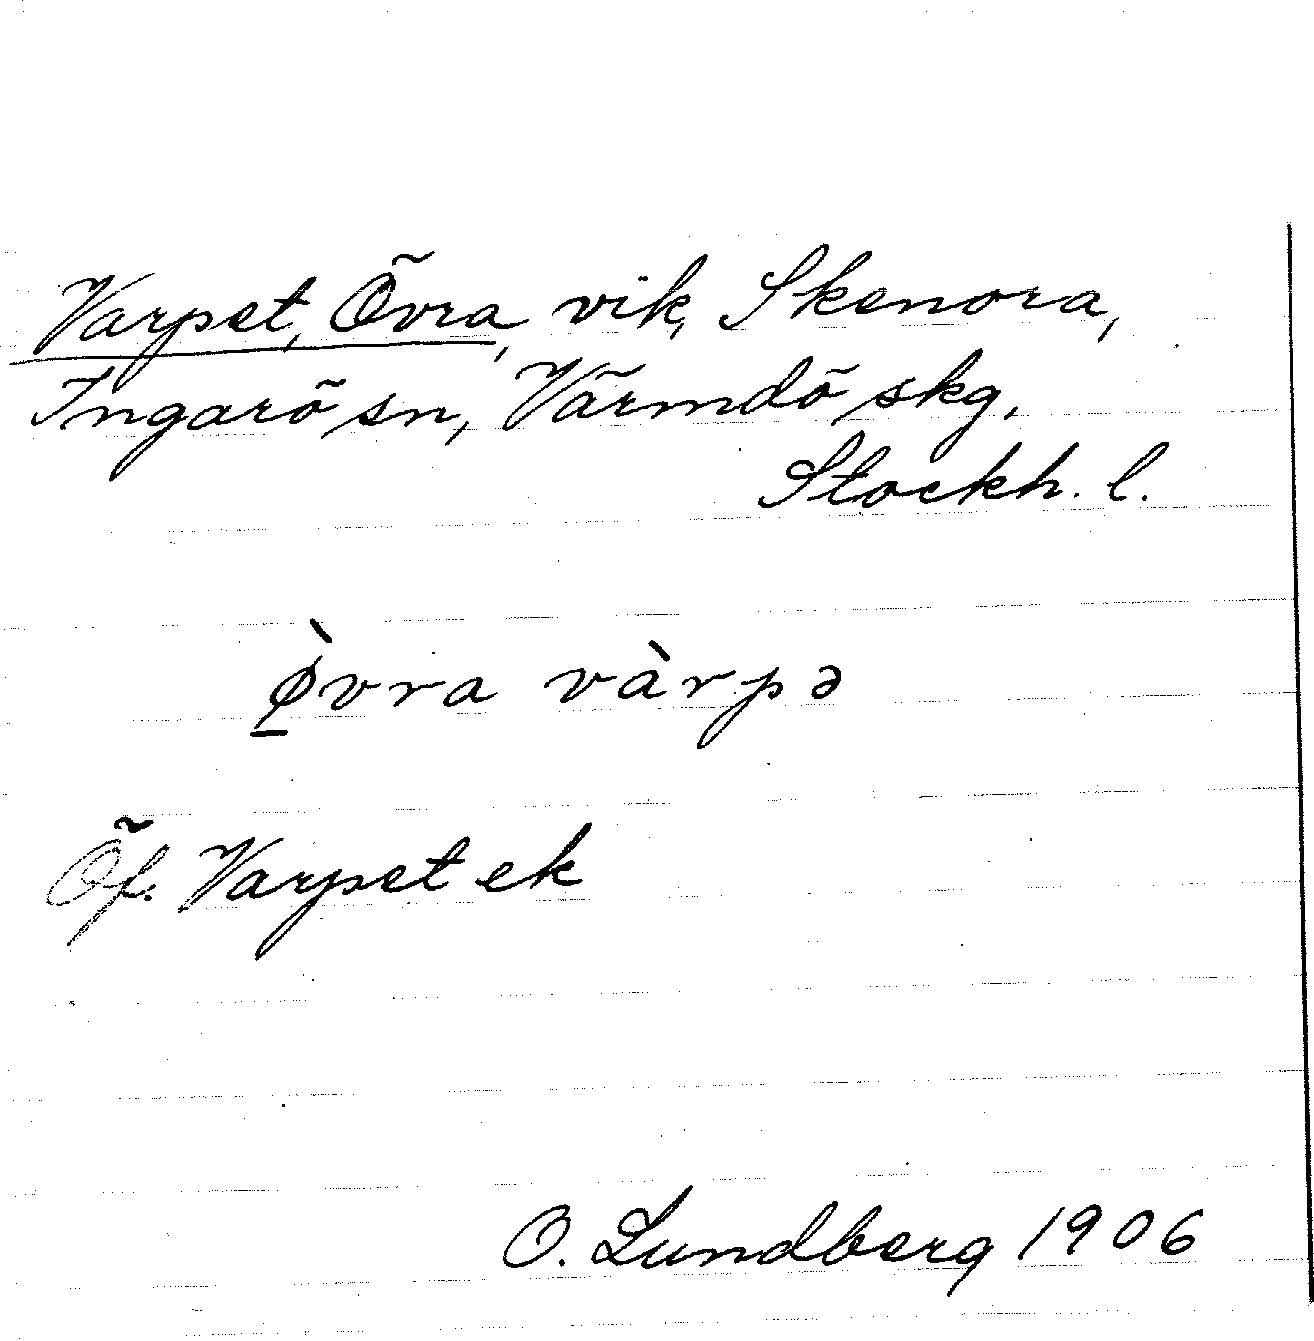 Varpet, Övra, vik, Skenora,
Ingarö sn, Värmdö skg.
Stockh. l.
ø̱̀vra vàrpə
Öf. Varpet ek
O. Lundberg 1906